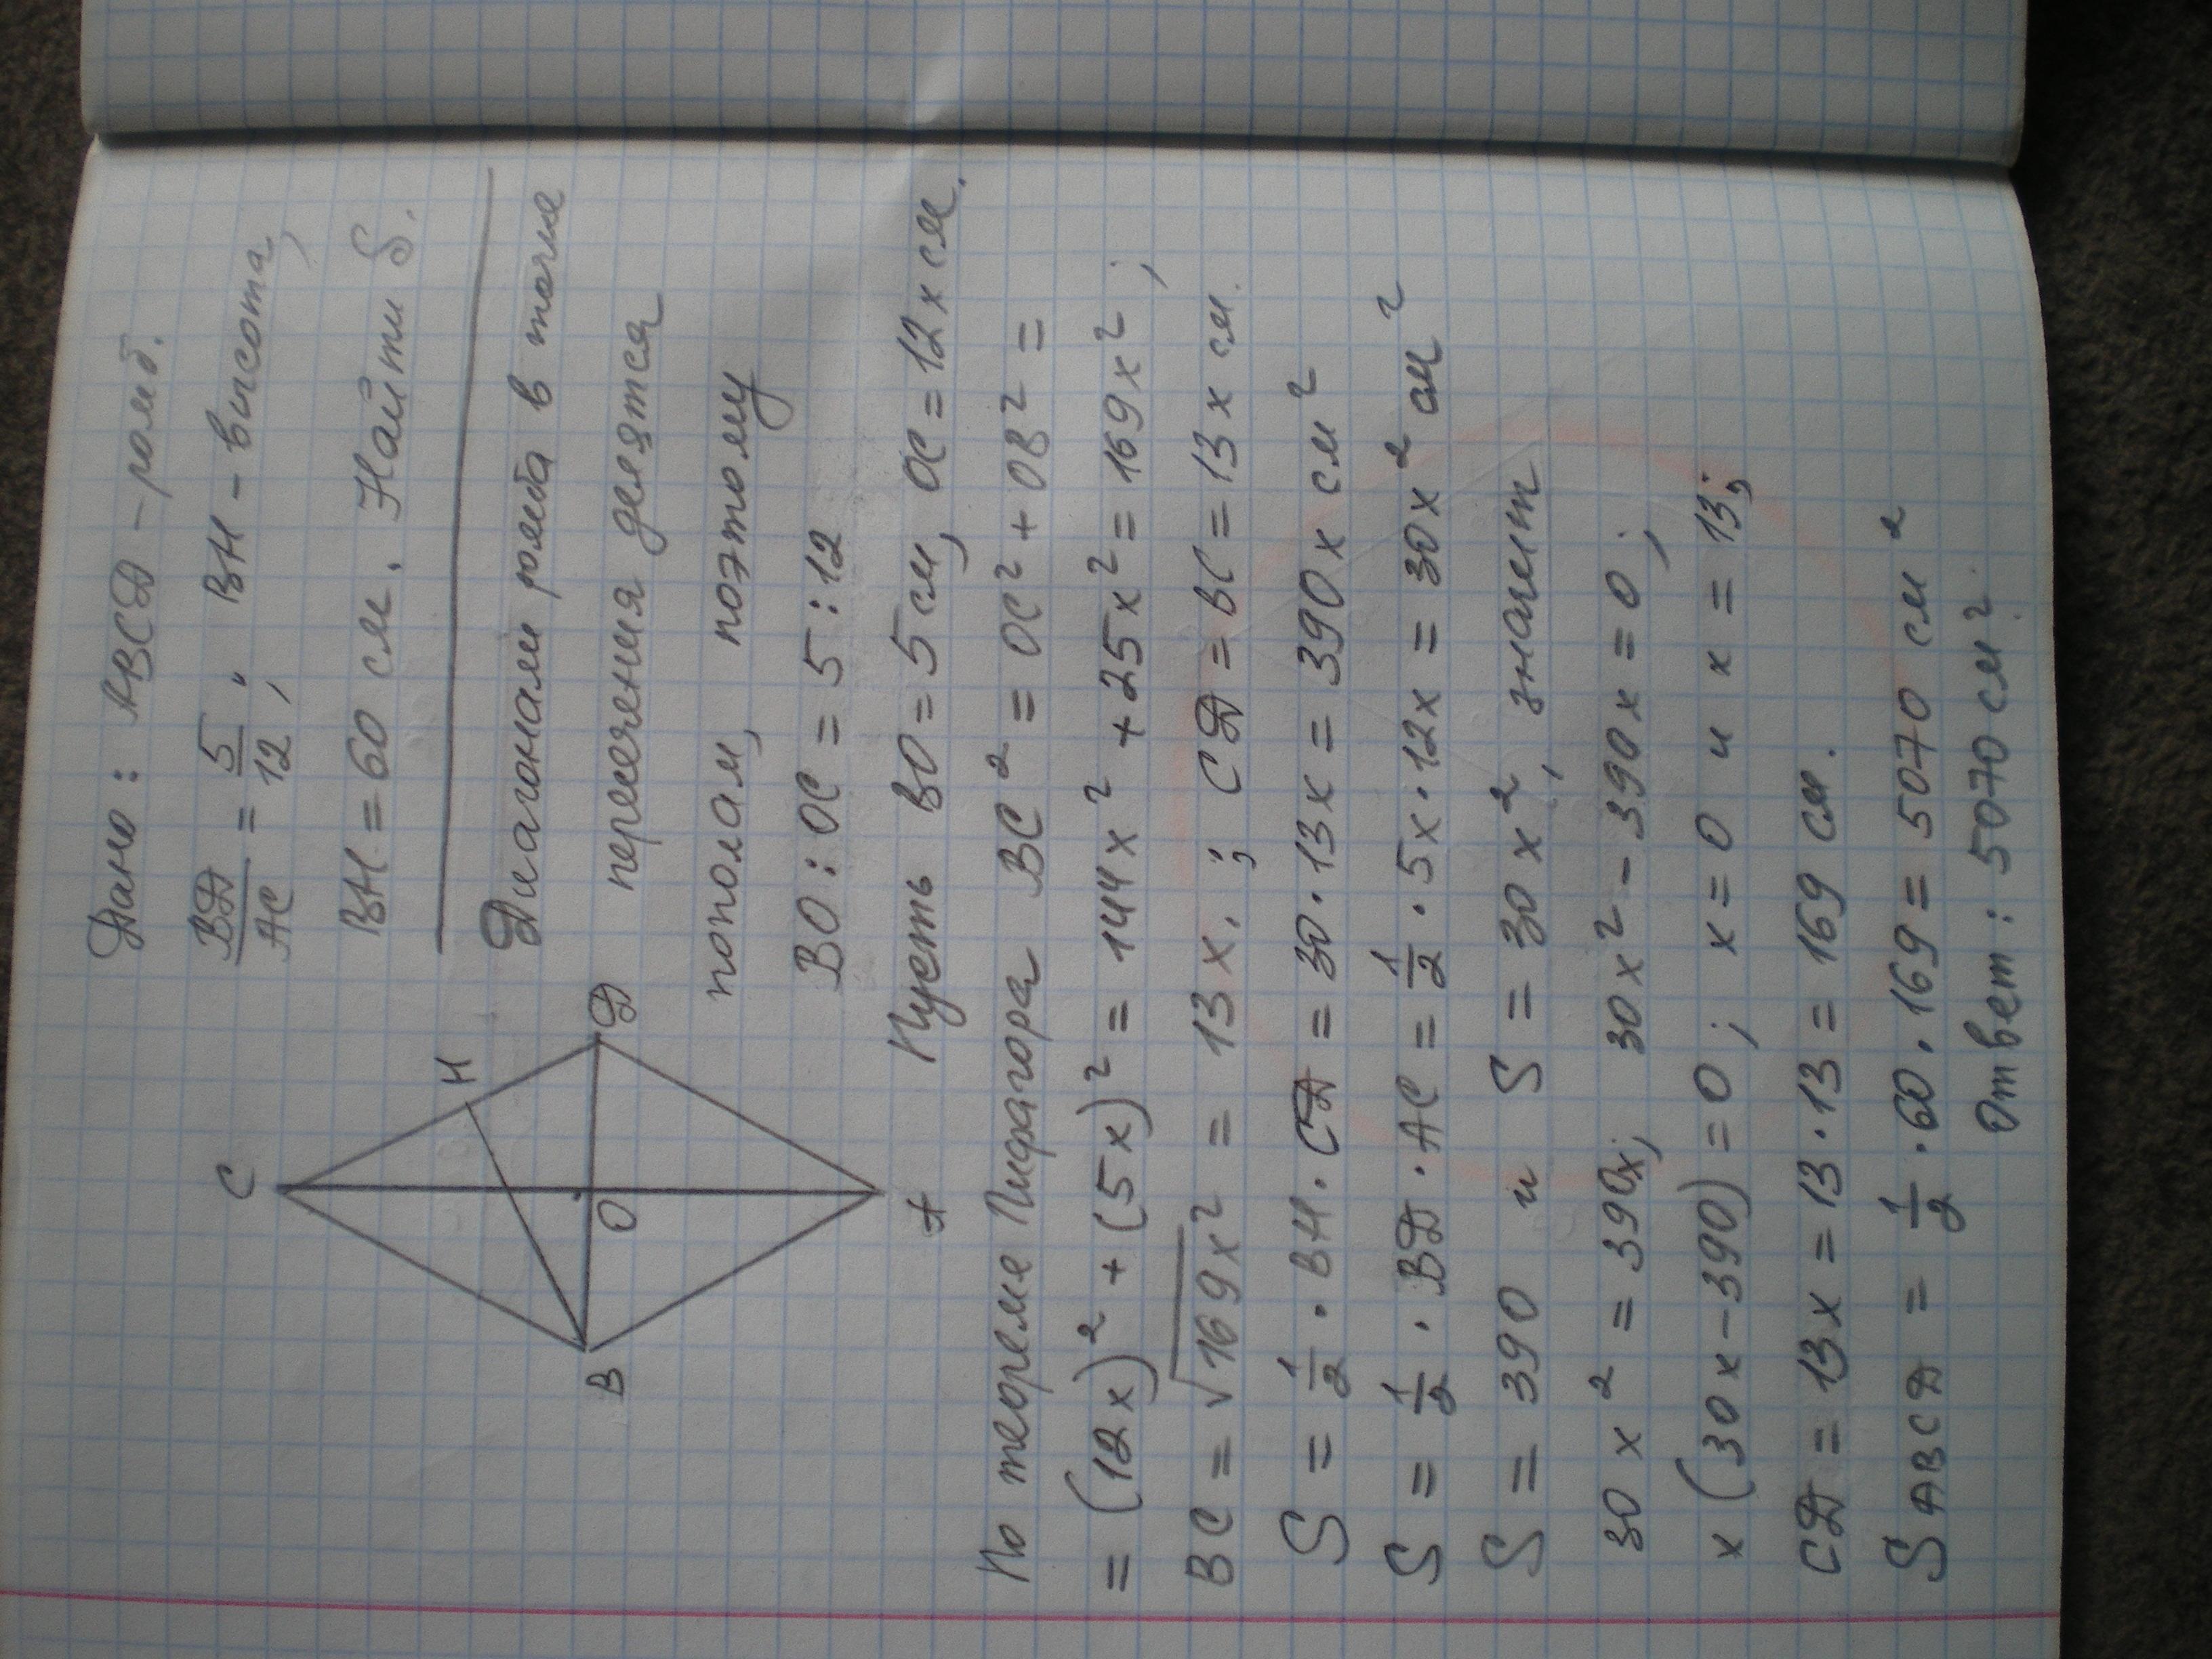 Дано: ABCD - ромб.
BD/AC = 5/12, BH - высота,
BH = 60 см. Найти S.
C
H
D
O
B
A
Диагонали ромба в точке
пересечения делятся
пополам, поэтому
BO : OC = 5 : 12
Пусть BO = 5 см, OC = 12x см.
По теореме Пифагора BC² = OC² + OB² =
= (12x)² + (5x)² = 144x² + 25x² = 169x²;
BC = √169x² = 13x.; CD = BC = 13x см.
S = 1/2 · BH · CD = 30 · 13x = 390x см²
S = 1/2 · BD · AC = 1/2 · 5x · 12x = 30x² см²
S = 390 и S = 30x², значит
30x² = 390x; 30x² - 390x = 0;
x(30x - 390) = 0; x = 0 и x = 13;
CD = 13x = 13 · 13 = 169 см.
S ABCD = 1/2 · 60 · 169 = 5070 см²
Ответ: 5070 см².